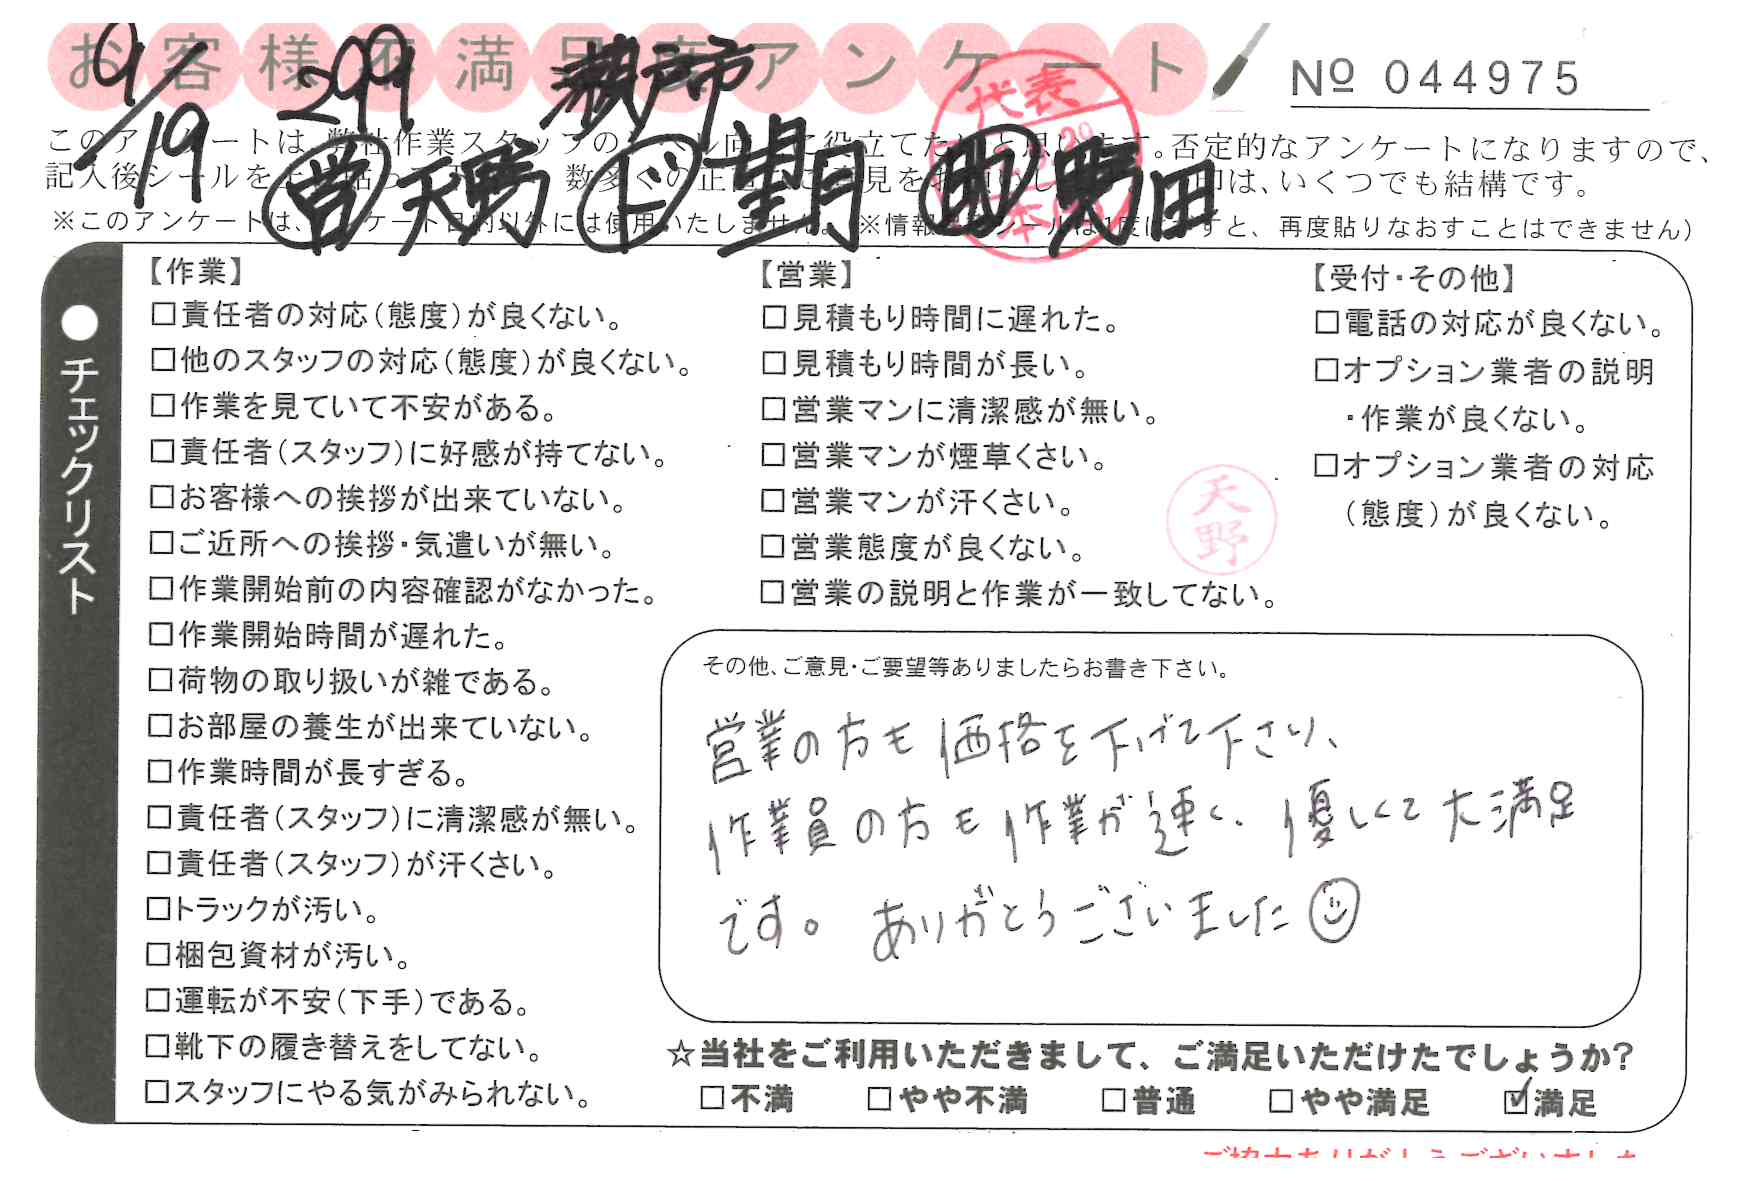 お客様不満足度アンケート
№ 044975
9/19 299 瀬戸市
営 天野 ド 望月 助 野田
代表
このアンケートは、弊社作業スタッフの 役立てた 思います。否定的なアンケートになりますので、
記入後シールを 数多くの正 見を 印は、いくつでも結構です。
※このアンケートは、アンケート目的以外には使用いたしません。※情報 シールは1度 すと、再度貼りなおすことはできません)
●チェックリスト
【作業】
□責任者の対応(態度)が良くない。
□他のスタッフの対応(態度)が良くない。
□作業を見ていて不安がある。
□責任者(スタッフ)に好感が持てない。
□お客様への挨拶が出来ていない。
□ご近所への挨拶・気遣いが無い。
□作業開始前の内容確認がなかった。
□作業開始時間が遅れた。
□荷物の取り扱いが雑である。
□お部屋の養生が出来ていない。
□作業時間が長すぎる。
□責任者(スタッフ)に清潔感が無い。
□責任者(スタッフ)が汗くさい。
□トラックが汚い。
□梱包資材が汚い。
□運転が不安(下手)である。
□靴下の履き替えをしてない。
□スタッフにやる気がみられない。
【営業】
□見積もり時間に遅れた。
□見積もり時間が長い。
□営業マンに清潔感が無い。
□営業マンが煙草くさい。
□営業マンが汗くさい。
□営業態度が良くない。
□営業の説明と作業が一致してない。
天野
【受付・その他】
□電話の対応が良くない。
□オプション業者の説明
・作業が良くない。
□オプション業者の対応
(態度)が良くない。
その他、ご意見・ご要望等ありましたらお書き下さい。
営業の方も価格を下げて下さり、
作業員の方も作業が速く、優しくて大満足
です。ありがとうございました☺
☆当社をご利用いただきまして、ご満足いただけたでしょうか?
□不満 □やや不満 □普通 □やや満足 ☑満足
ご協力ありがとうございました